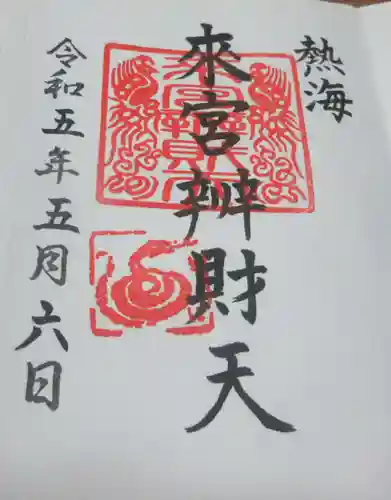 熱海
來宮辨財天
令和五年五月六日